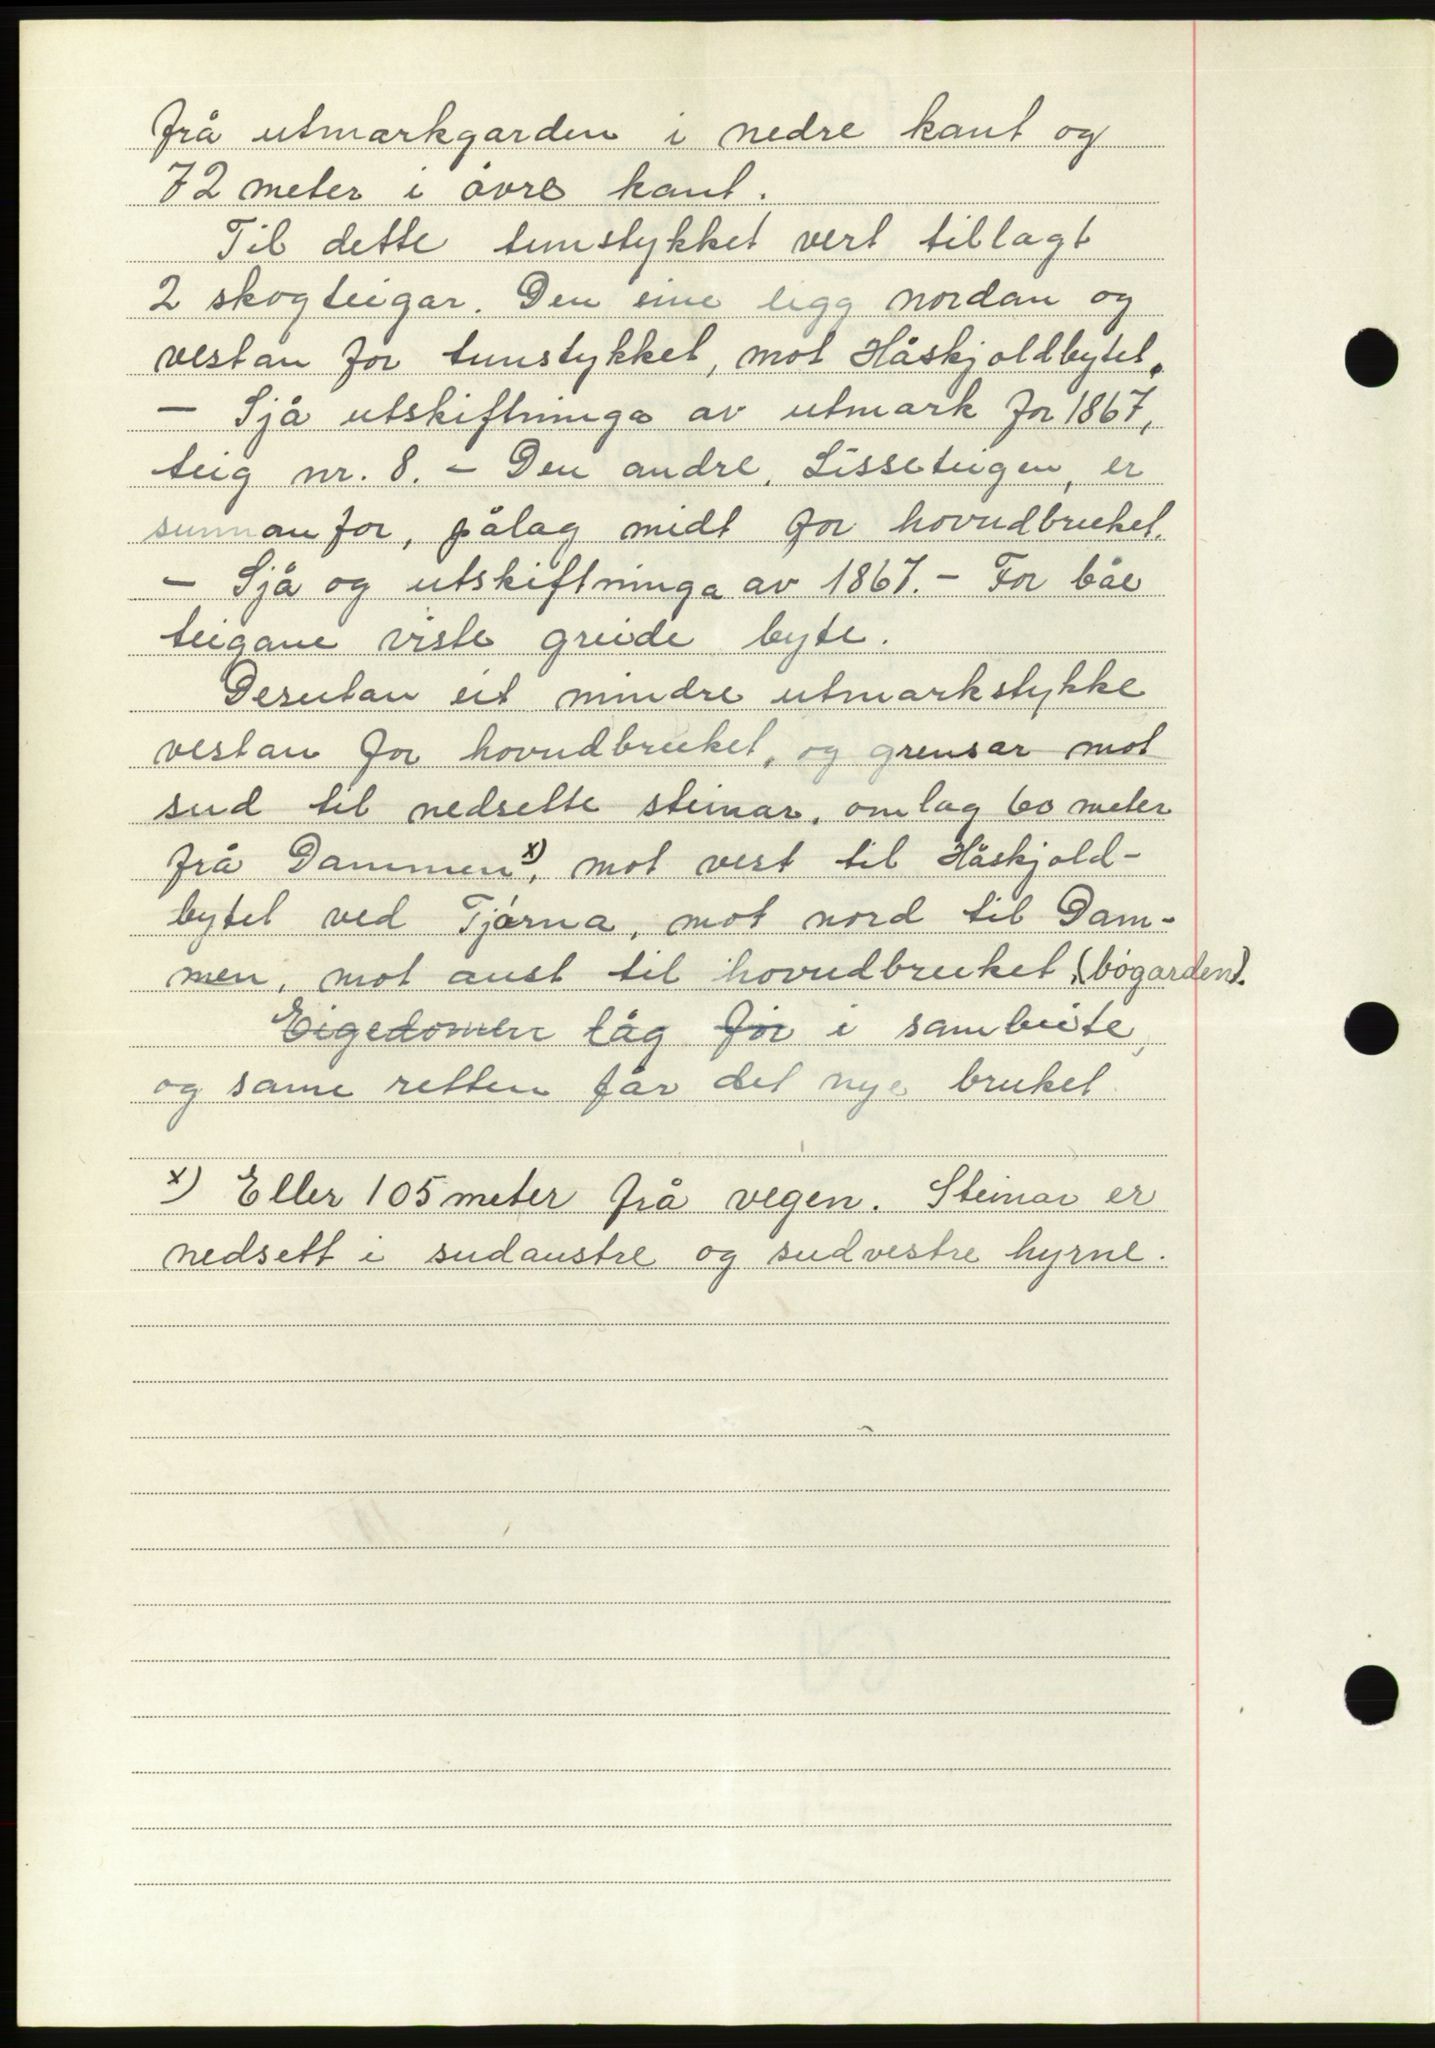 frå utmarkgarden i nedre kant og
72 meter i óvre kant.
Til dette tunstykket vert tillagt
2 skogteigar. Den eine ligg nordan og
vestan for tunstykket, mot Håskjoldbytet.
– Sjå utskiftninga av utmark for 1867,
teig nr. 8. – Den andre, Lisseteigen, er
sunnanfor, pålag midt for hovudbruket.
– Sjå og utskiftninga av 1867. – For båe
teigane viste greide byte.
Desutan eit mindre utmarkstykke
vestan for hovudbruket, og grensar mot
sud til nedsette steinar, omlag 60 meter
frå Dammen x), mot vest til Håskjold-
bytet ved Tjórna, mot nord til Dam-
men, mot aust til hovudbruket (bógarden).
Eigedomen låg for i sambeite,
og same retten får det nye bruket
x) Eller 105 meter frå vegen. Steinar er
nedsett i sudaustre og sudvestre hyrne.